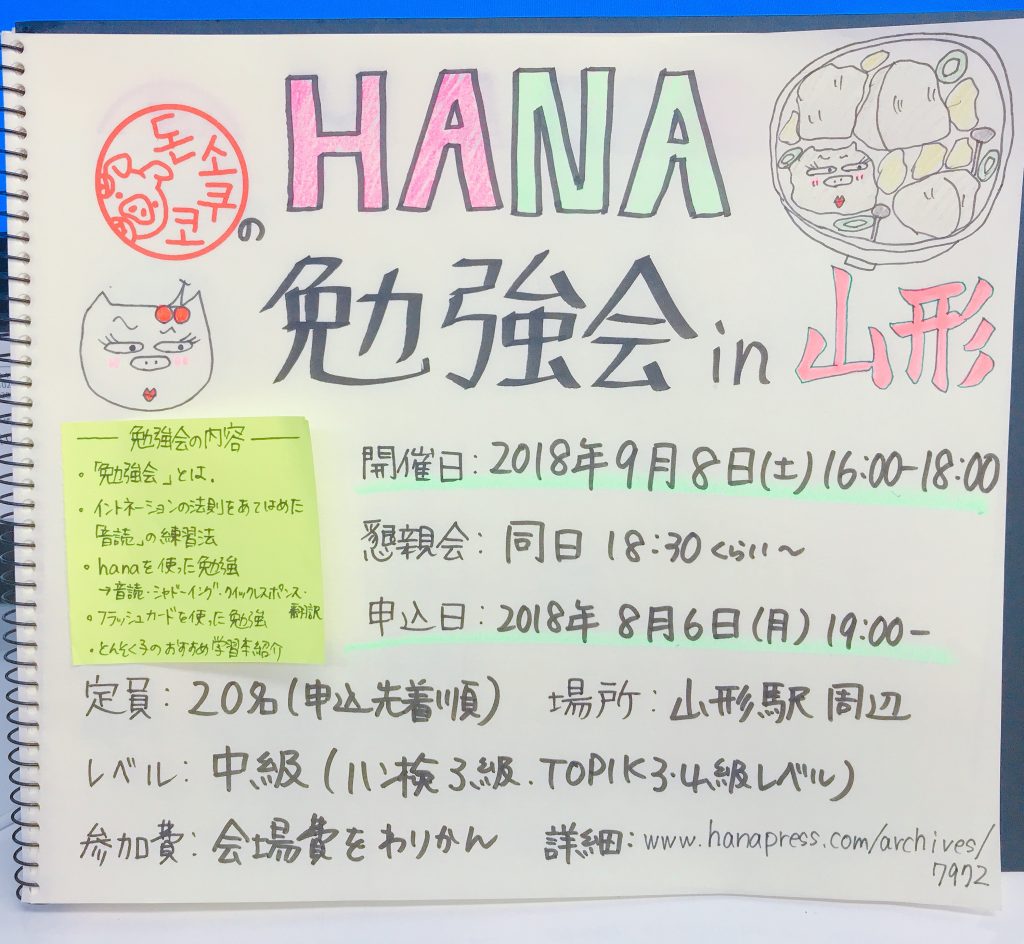 HANA
돈소쿠코の
勉強会 in 山形
勉強会の内容
・「勉強会」とは.
・イントネーションの法則をあてはめた
「音読」の練習法
・hanaを使った勉強
→音読・シャドーイング・クイックレスポンス・
翻訳
・フラッシュカードを使った勉強
・とんそくろのおすすめ学習本紹介
開催日:2018年9月8日(土)16:00-18:00
懇親会:同日 18:30くらい〜
申込日:2018年 8月6日(月) 19:00-
定員:20名(申込先着順) 場所:山形駅 周辺
レベル:中級(ハン検3級.TOPIK3・4級レベル)
参加費:会場費をわりかん 詳細:www.hanapress.com/archives/
7972